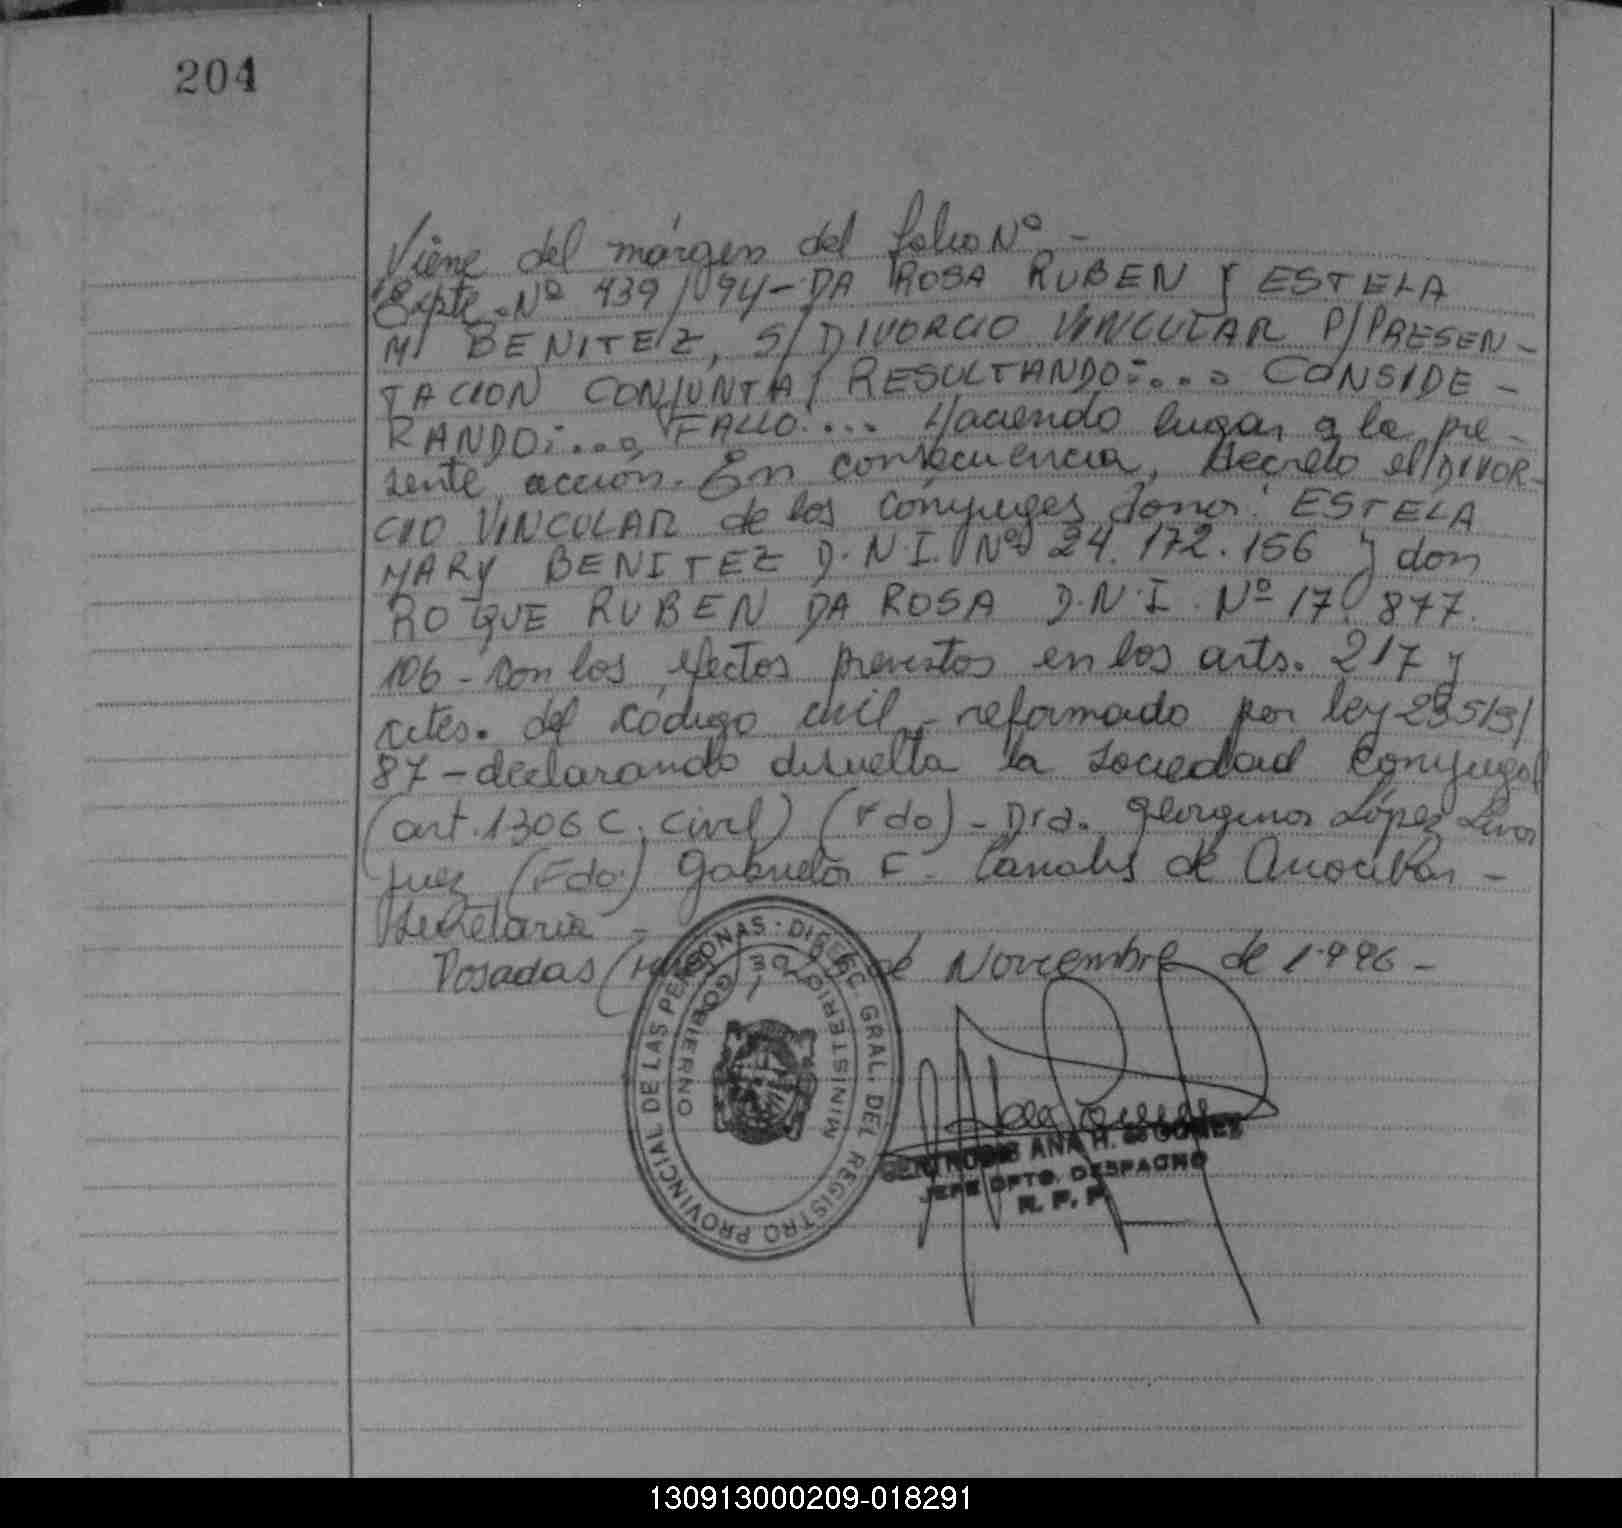 204
Viene del márgen del folio Nº -
Expte. Nº 439/94-DA ROSA RUBEN Y ESTELA
M. BENITEZ, S/DIVORCIO VINCULAR P/PRESEN-
TACION CONJUNTA/ RESULTANDO:... CONSIDE-
RANDO:... FALLO:... Haciendo lugar a la pre-
sente acción. En consecuencia, Decreto el DIVOR-
CIO VINCULAR de los cónyuges doña: ESTELA
MARY BENITEZ D.N.I. Nº 24.172.156 y don
ROQUE RUBEN DA ROSA D.N.I. Nº 17.877.
106 - con los efectos previstos en los arts. 217 y
cctes. del código civil - reformado por ley 23515/
87 - declarando disuelta la sociedad conyugal
(art. 1306 C. Civil) (Fdo) - Dra. Georgina López
Juez (Fdo.) Gabriela F. Canalis de
Secretaria -
Posadas ( de Noviembre de 1996 -
DIREC. GRAL. DEL REGISTRO PROVINCIAL DE LAS PERSONAS
MINISTERIO DE GOBIERNO
GERTRUDIS ANA H. de GOMEZ
JEFE DPTO. DESPACHO
R. P. P.
130913000209-018291